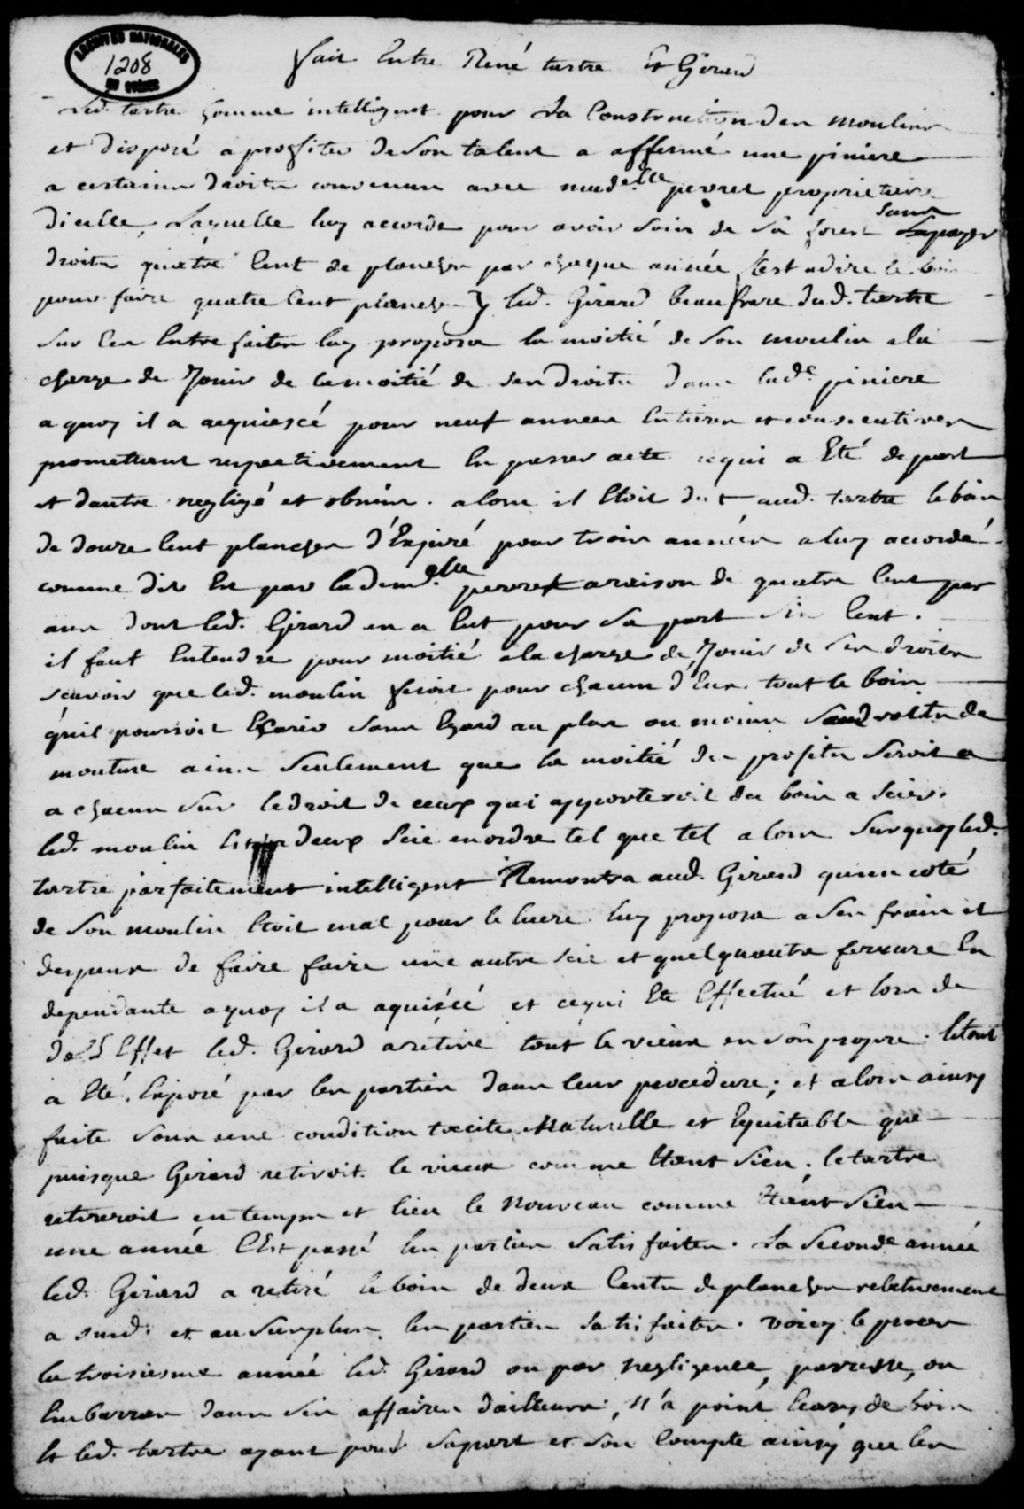 ARCHIVES NATIONALES
1208
DU QUÉBEC
fait Entre René tartre Et Girard
Led. tartre homme intelligent pour La Construction d'un moulin
et disposé a profiter de Son talent a affermé une piniere
a certains droits convenus avec mad.elle perret proprietaire
dicelle, Laquelle luy accorde pour avoir Soin de Sa forest Sans Lapayer
droits quatre Cent de planches par chaque année C'est adire le bois
pour faire quatre Cent planches led. Girard beau frere dud. tartre
Sur Ces Entrefaites luy proposa la moitié de Son moulin a la
charge de Jouir de la moitié de Ses droits dans lad.e piniere
a quoy il a acquiescé pour neuf années Entieres et consecutives
promettant respectivement En passer acte cequi a Eté de part
et dautre negligé et obmis. alors il Etoit du aud. tartre le bois
de douze Cent planches d'Expiré pour trois années a luy accordé
comme dit Est par lad.e mad.elle perret a raison de quatre Cent par
ans dont led. Girard en a Eut pour Sa part Six Cent.
il faut Entendre pour moitié a la charge de Jouir de Ses droits
scavoir que led. moulin feroit pour chacun d'Eux tout le bois
qu'il pourroit Equarir Sans Egard au plus ou moins de
mouture ains Seulement que la moitié des profits Seroit a
a chacun Sur le droit de ceux qui apporteroit des bois a Scier.
led. moulin deux Scie en ordre tel que tel alors Surquoy led.
tartre parfaitement intelligent Remontra aud. Girard qu'un coté
de Son moulin Etoit mal pour le lucre luy proposa a Ses frais et
depens de faire faire une autre Scie et quelquautre ferrure En
dependante a quoy il a aquiescé et cequi Ete Effectué et lors de
Effet led. Girard a retiré tout le vieux en Son propre. le tout
a Eté Exposé par les parties dans leur procedure; et alors ainsy
faite Sous une condition tacite Naturelle et Equitable que
puisque Girard retiroit le vieux comme Etant Sien. le tartre
retireroit en temps et lieu le Nouveau comme Etant Sien
une année S'Est passé les parties Satisfaites. La Seconde année
led. Girard a retiré le bois de deux Cents de planches relativement
a Sud. et au Surplus les parties Satisfaites. voicy le proces
la troisiesme année led. Girard ou par negligence, paresse, ou
Embarras dans Ses affaires dailleurs, n'a point de bois
Et led. tartre ayant pour Sapart et Son Compte ainsy que les